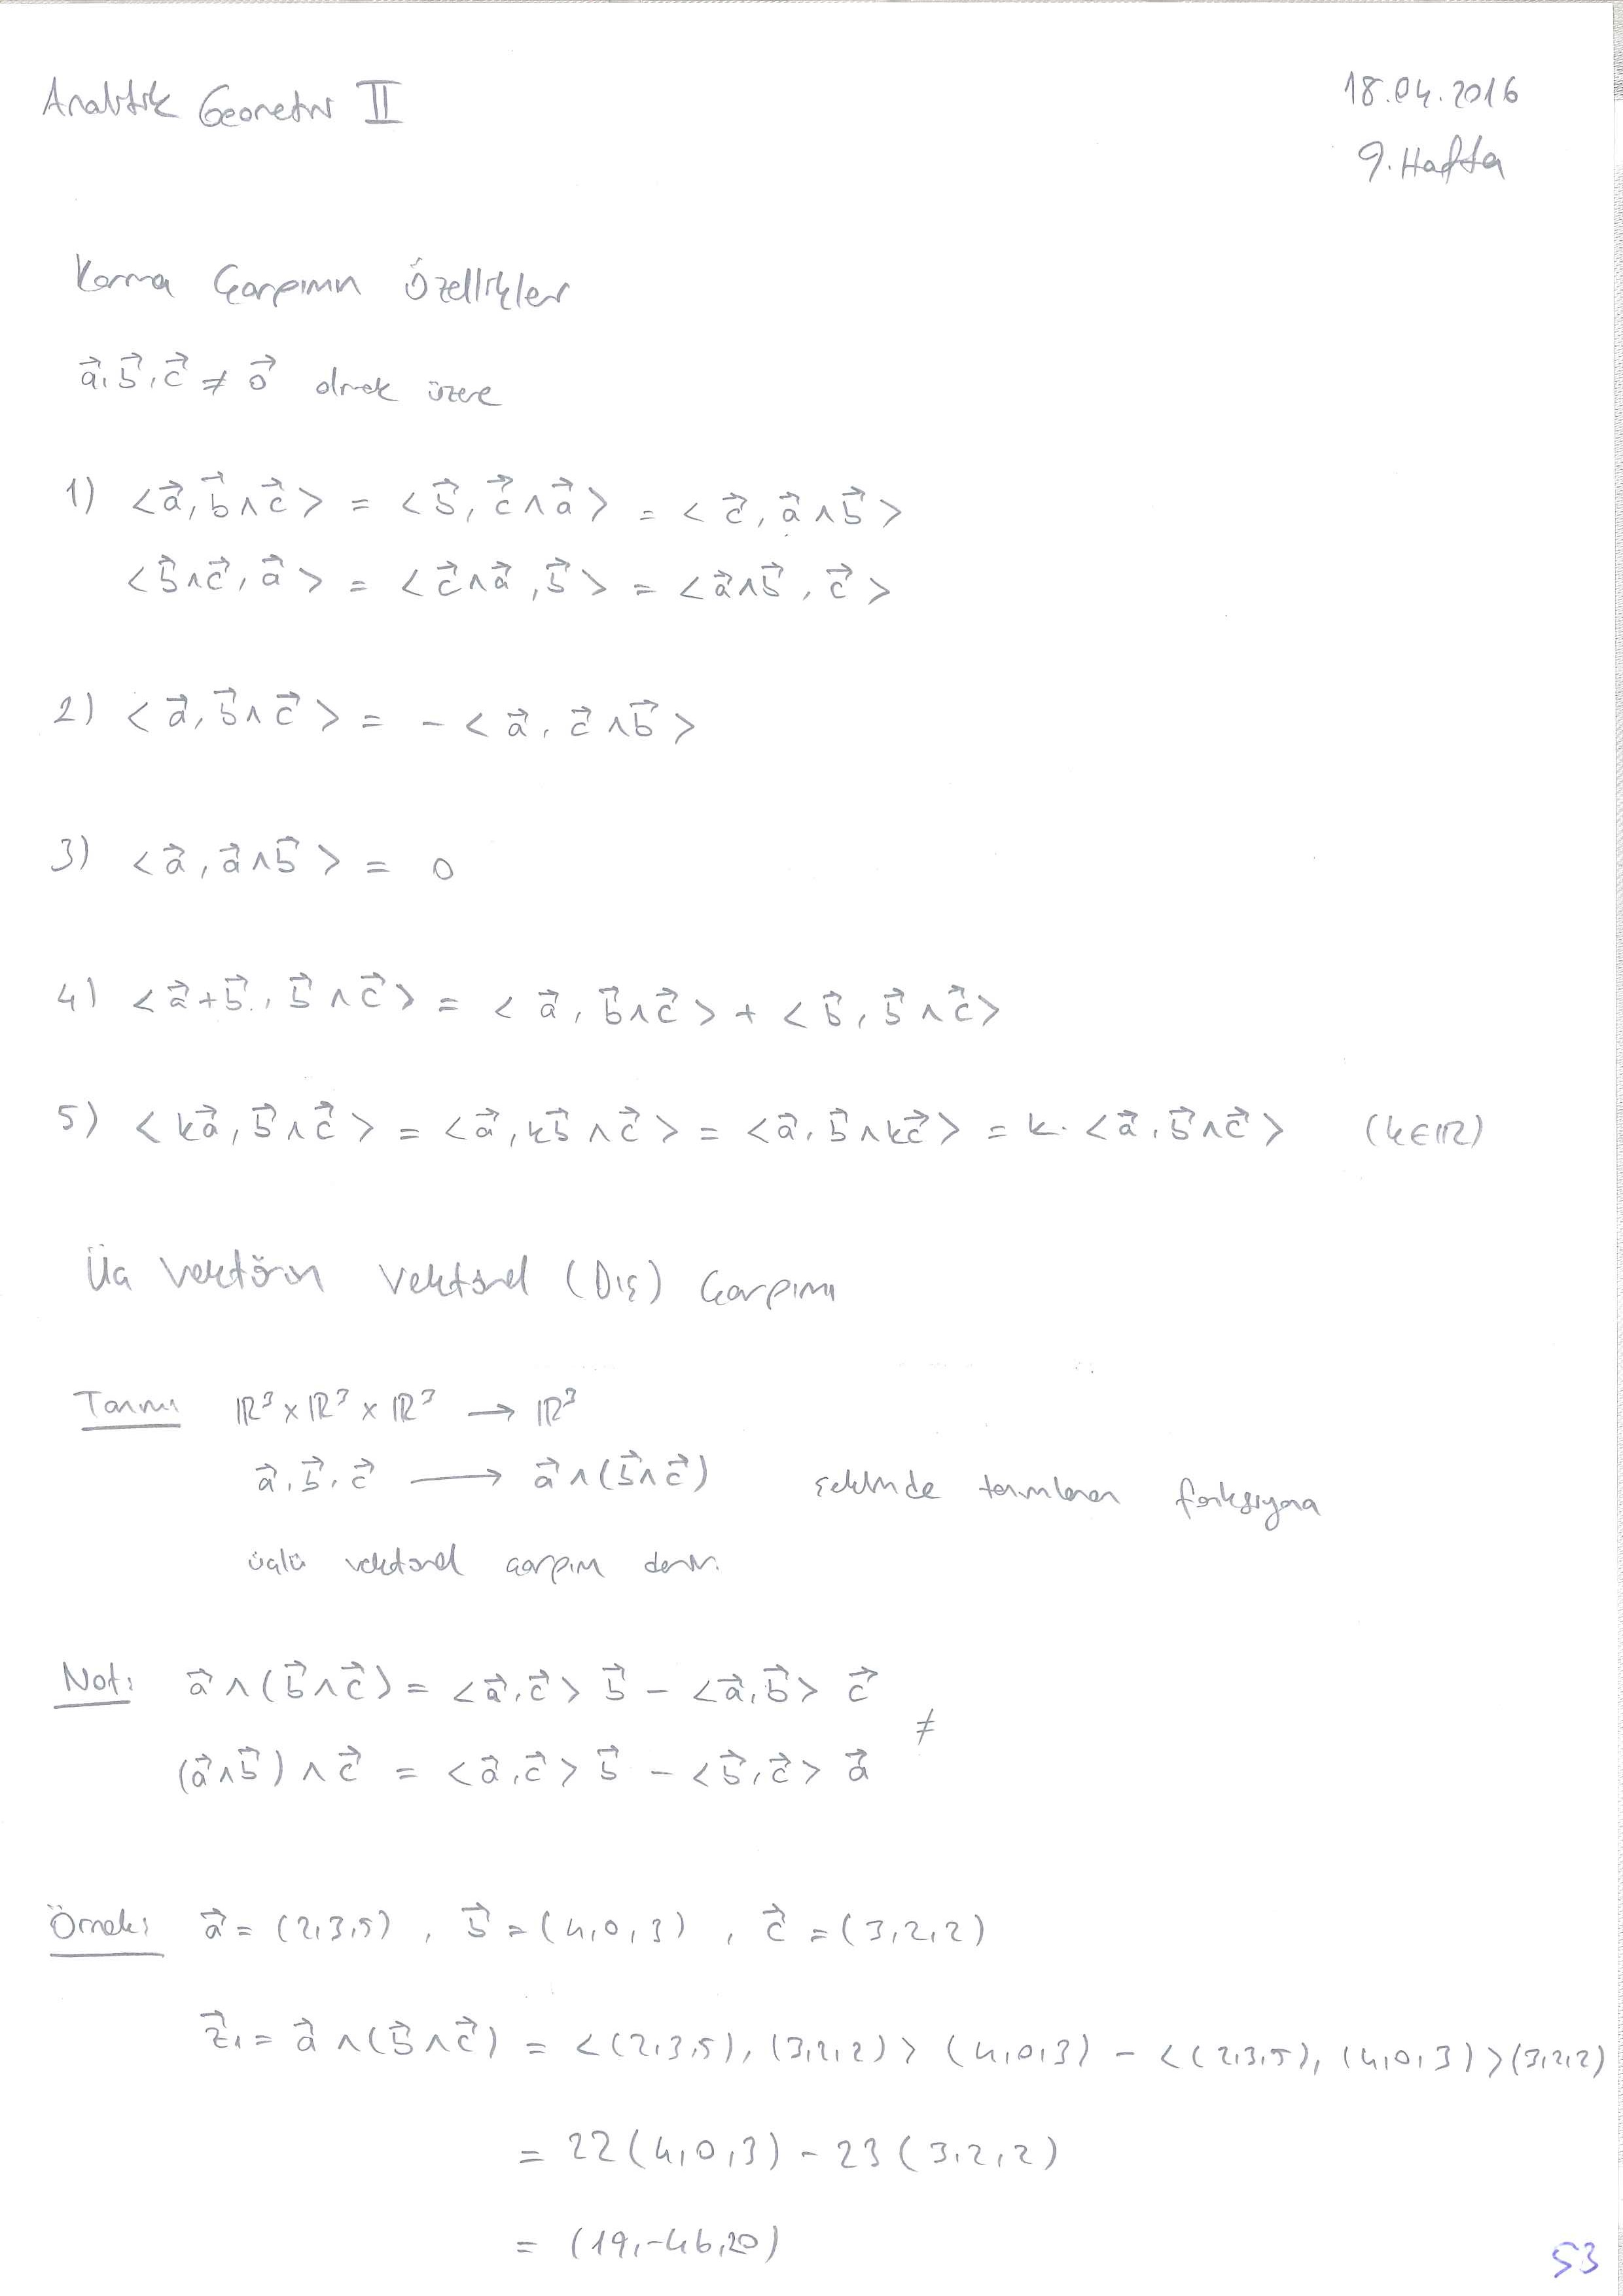 Analitik Geometri II
18.04.2016
9. Hafta
Karma Çarpımın Özellikleri
a⃗, b⃗, c⃗ ≠ 0⃗ olmak üzere
1) <a⃗, b⃗∧c⃗> = <b⃗, c⃗∧a⃗> = <c⃗, a⃗∧b⃗>
<b⃗∧c⃗, a⃗> = <c⃗∧a⃗, b⃗> = <a⃗∧b⃗, c⃗>
2) <a⃗, b⃗∧c⃗> = - <a⃗, c⃗∧b⃗>
3) <a⃗, a⃗∧b⃗> = 0
4) <a⃗+b⃗, b⃗∧c⃗> = <a⃗, b⃗∧c⃗> + <b⃗, b⃗∧c⃗>
5) <ka⃗, b⃗∧c⃗> = <a⃗, kb⃗∧c⃗> = <a⃗, b⃗∧kc⃗> = k. <a⃗, b⃗∧c⃗> (k∈ℝ)
Üç Vektörün Vektörel (Dış) Çarpımı
Tanım ℝ³ x ℝ³ x ℝ³ → ℝ³
a⃗, b⃗, c⃗ ⟶ a⃗∧(b⃗∧c⃗) şeklinde tanımlanan fonksiyona
üçlü vektörel çarpım denir.
Not: a⃗∧(b⃗∧c⃗) = <a⃗, c⃗> b⃗ - <a⃗, b⃗> c⃗
≠
(a⃗∧b⃗)∧c⃗ = <a⃗, c⃗> b⃗ - <b⃗, c⃗> a⃗
Örnek: a⃗ = (2,3,5), b⃗ = (4,0,3), c⃗ = (3,2,2)
z⃗₁ = a⃗∧(b⃗∧c⃗) = <(2,3,5), (3,2,2)> (4,0,3) - <(2,3,5), (4,0,3)>(3,2,2)
= 22(4,0,3) - 23(3,2,2)
= (19,-46,20)
53